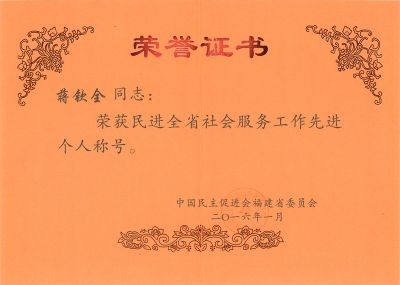 荣誉证书
蒋钦全 同志：
荣获民进全省社会服务工作先进
个人称号。
中国民主促进会福建省委员会
二〇一六年一月